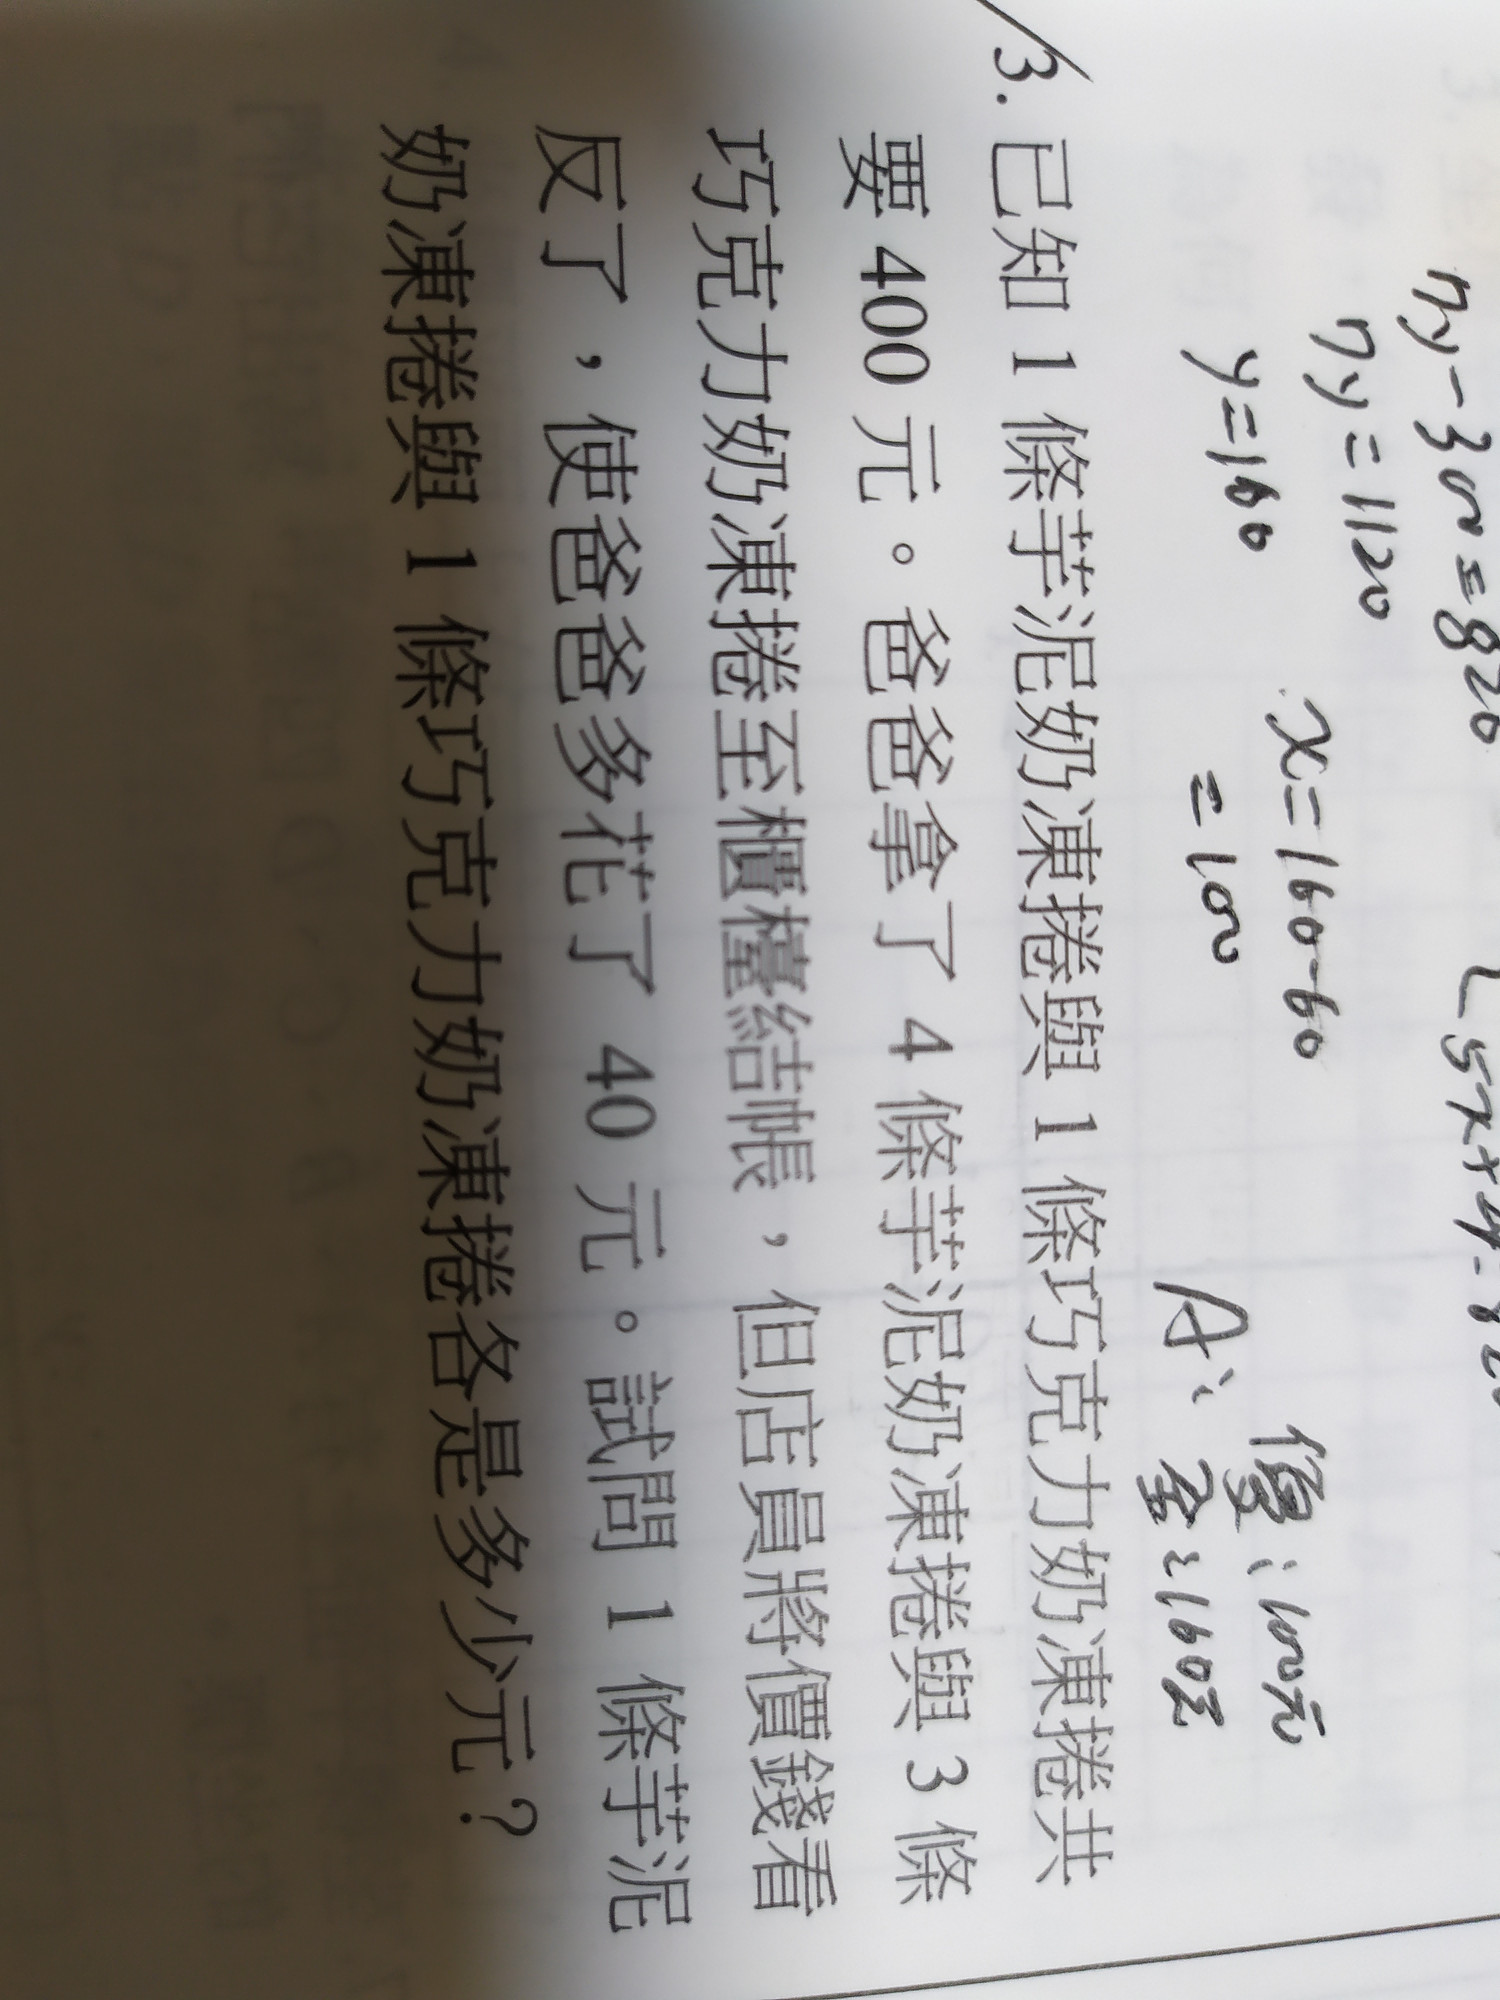 7y-300=820
7y=1120
y=160
x=160-60
=100
A: 優:100元
全:160元
3. 已知 1 條芋泥奶凍捲與 1 條巧克力奶凍捲共
要 400 元。爸爸拿了 4 條芋泥奶凍捲與 3 條
巧克力奶凍捲至櫃檯結帳,但店員將價錢看
反了,使爸爸多花了 40 元。試問 1 條芋泥
奶凍捲與 1 條巧克力奶凍捲各是多少元?